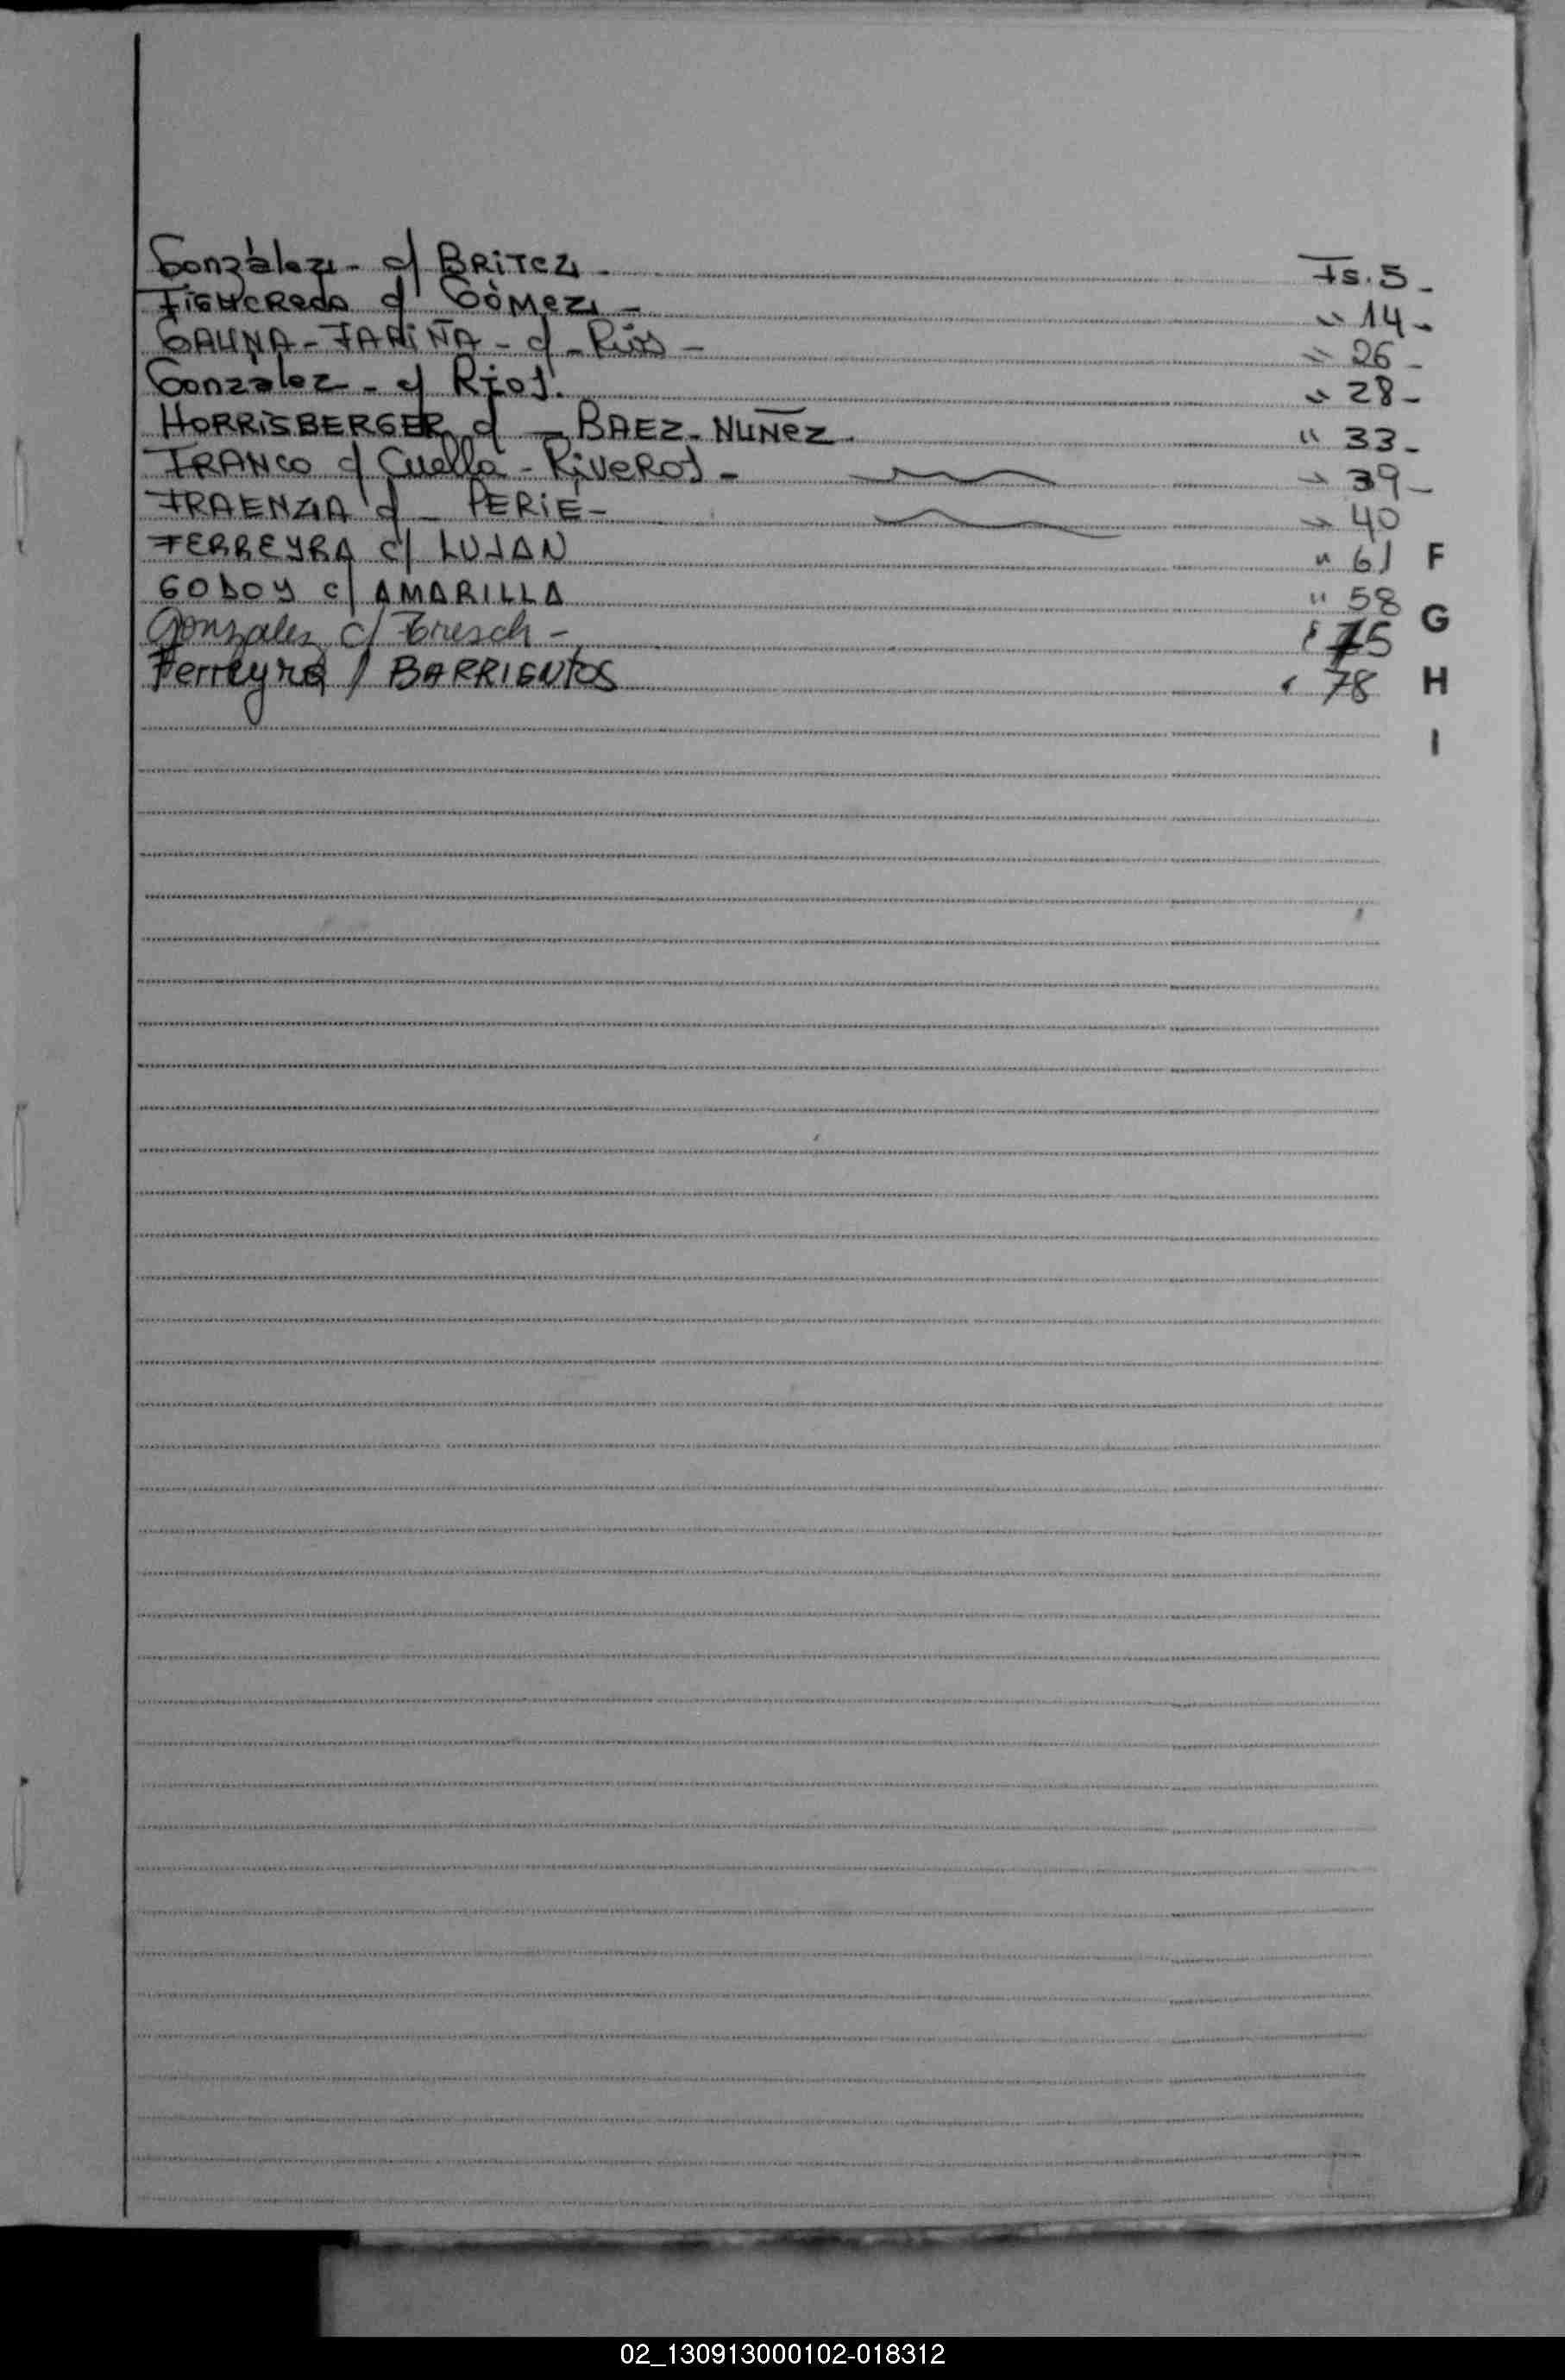 Gonzàlez - c/ BRiTez - Fs. 5 -
FiGueRedo c/ GòMez - " 14 -
GAUNA - FARiÑA - c/ - Ríos - " 26 -
Gonzalez - c/ Rios. " 28 -
HORRiSBERGER c/ - BAEZ - NUÑeZ. " 33 -
FRANco c/ Cuella - RiveRos - " 39 -
FRAENZA c/ - PERiE - " 40
FERREYRA c/ LUJAN " 61
GODOY c/ AMARILLA " 58
Gonzales c/ Bresch - " 75
Ferreyra / BARRIENtos " 78
F
G
H
I
02_130913000102-018312